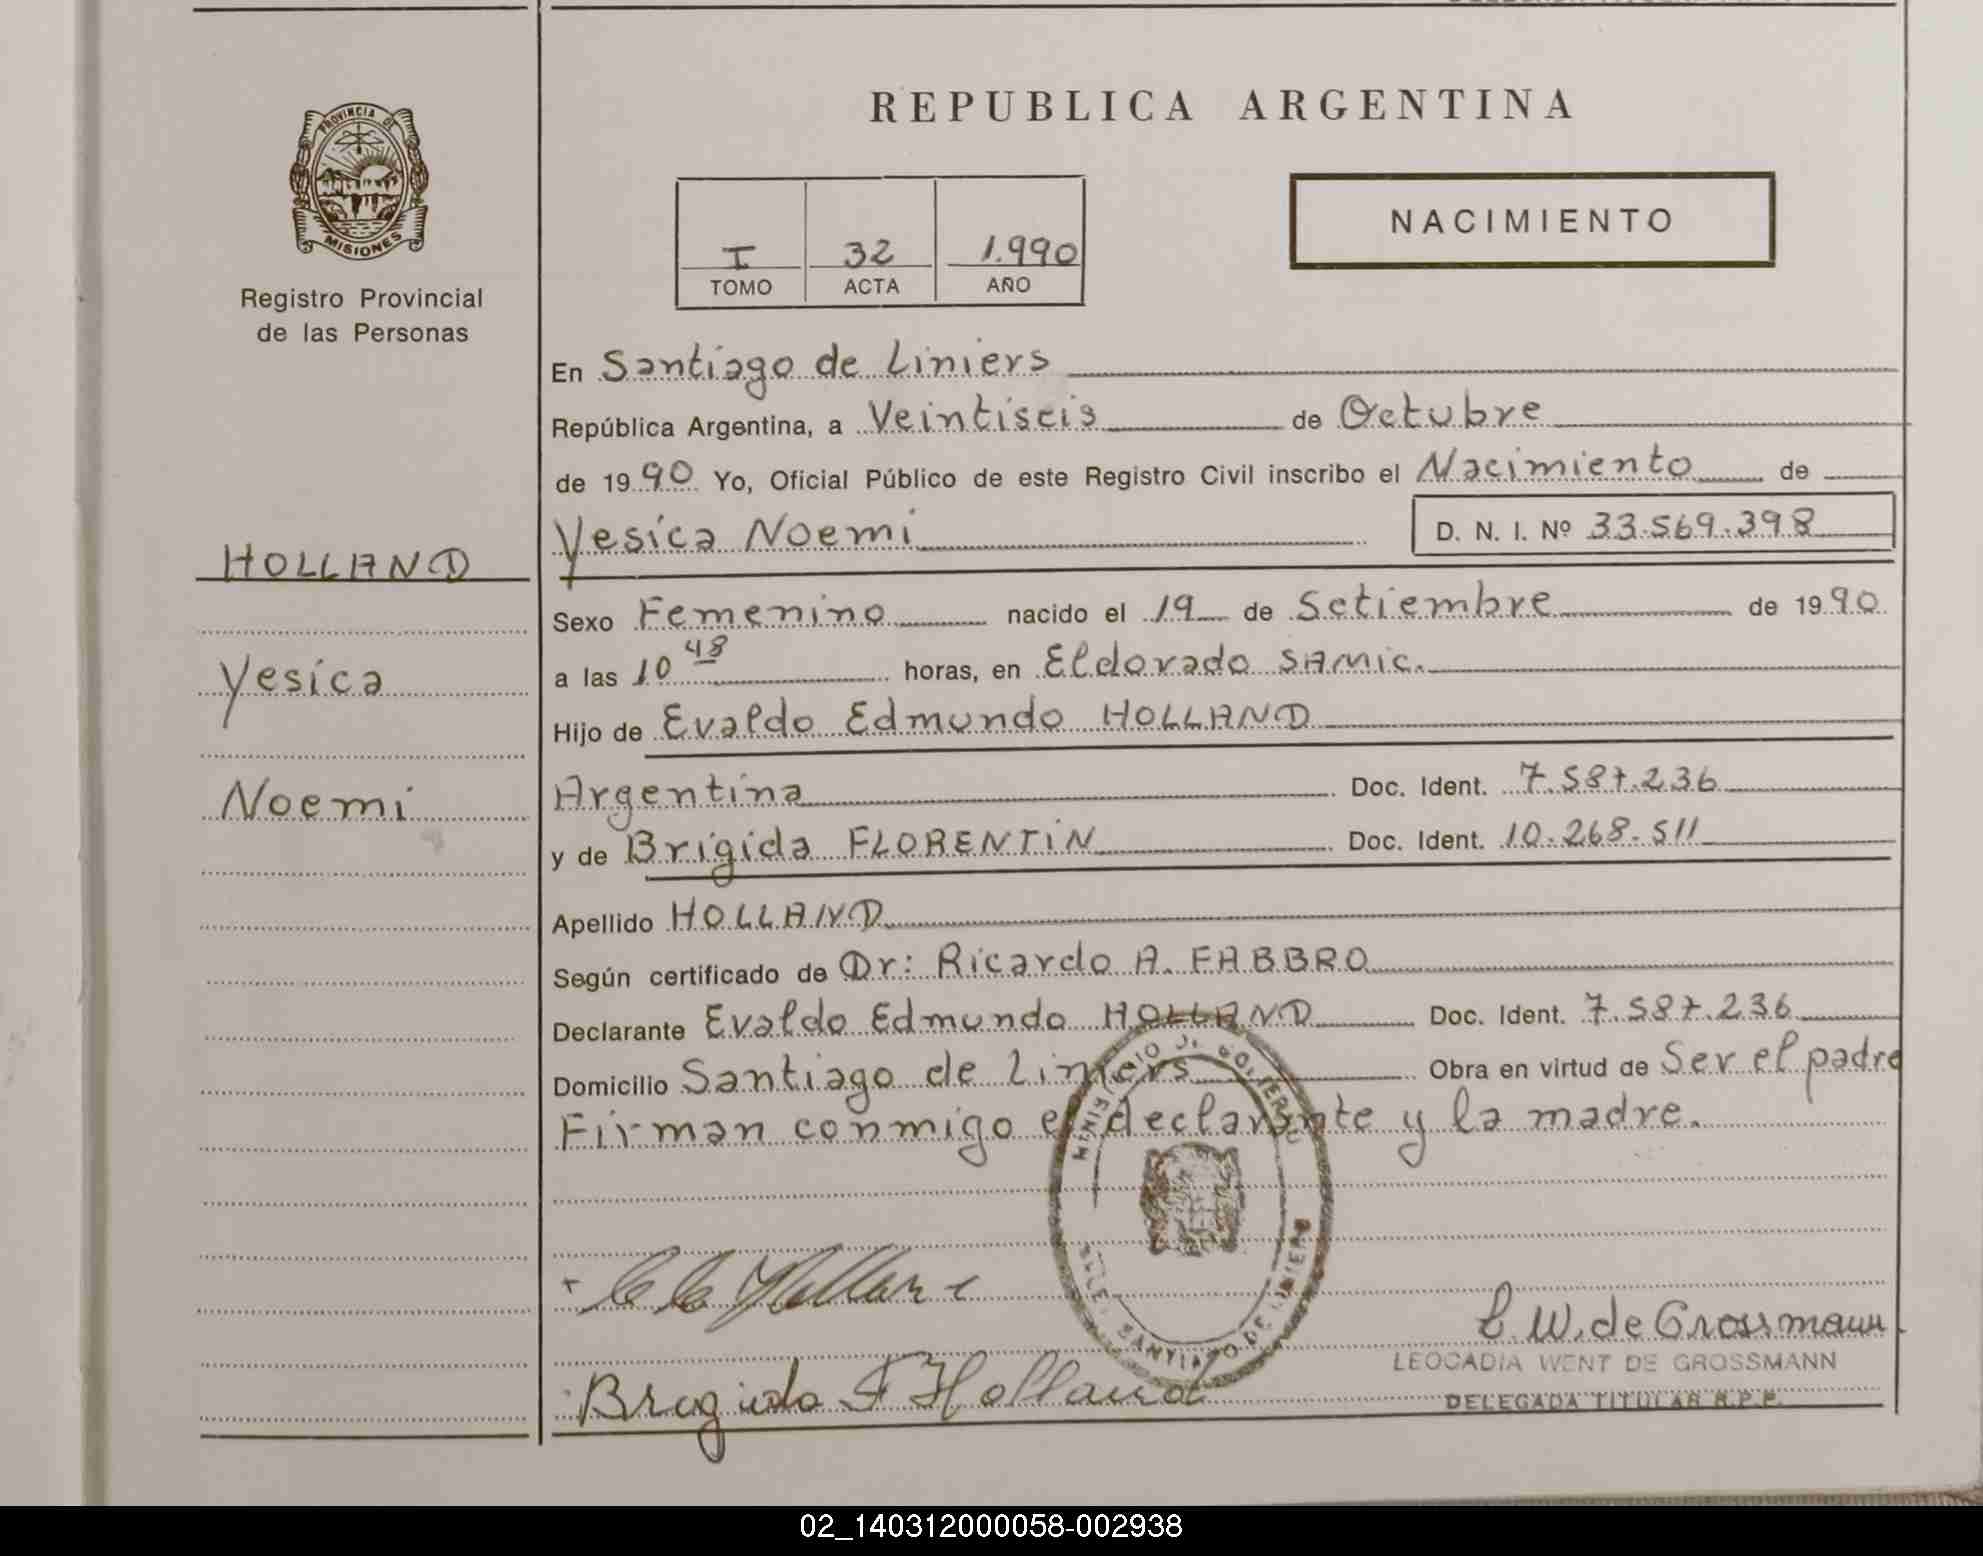 REPUBLICA ARGENTINA
PROVINCIA DE
MISIONES
Registro Provincial
de las Personas
NACIMIENTO
I 32 1.990
TOMO ACTA AÑO
En Santiago de Liniers
República Argentina, a Veintiseis de Octubre
de 1990 Yo, Oficial Público de este Registro Civil inscribo el Nacimiento de
Yesica Noemi D. N. I. Nº 33.569.398
HOLLAND
Yesica
Noemi
Sexo Femenino nacido el 19 de Setiembre de 1990
a las 10 48 horas, en Eldorado SAMIC.
Hijo de Evaldo Edmundo HOLLAND
Argentina Doc. Ident. 7.587.236
y de Brigida FLORENTIN Doc. Ident. 10.268.511
Apellido HOLLAND
Según certificado de Dr: Ricardo A. FABBRO
Declarante Evaldo Edmundo HOLLAND Doc. Ident. 7.587.236
Domicilio Santiago de Liniers Obra en virtud de Ser el padre
Firman conmigo el declarante y la madre.
MINISTERIO DE GOBIERNO
SANTIAGO DE LINIERS
Holland
Bragida F Holland
L W. de Grossmann
LEOCADIA WENT DE GROSSMANN
DELEGADA TITULAR R.P.P.
02_140312000058-002938